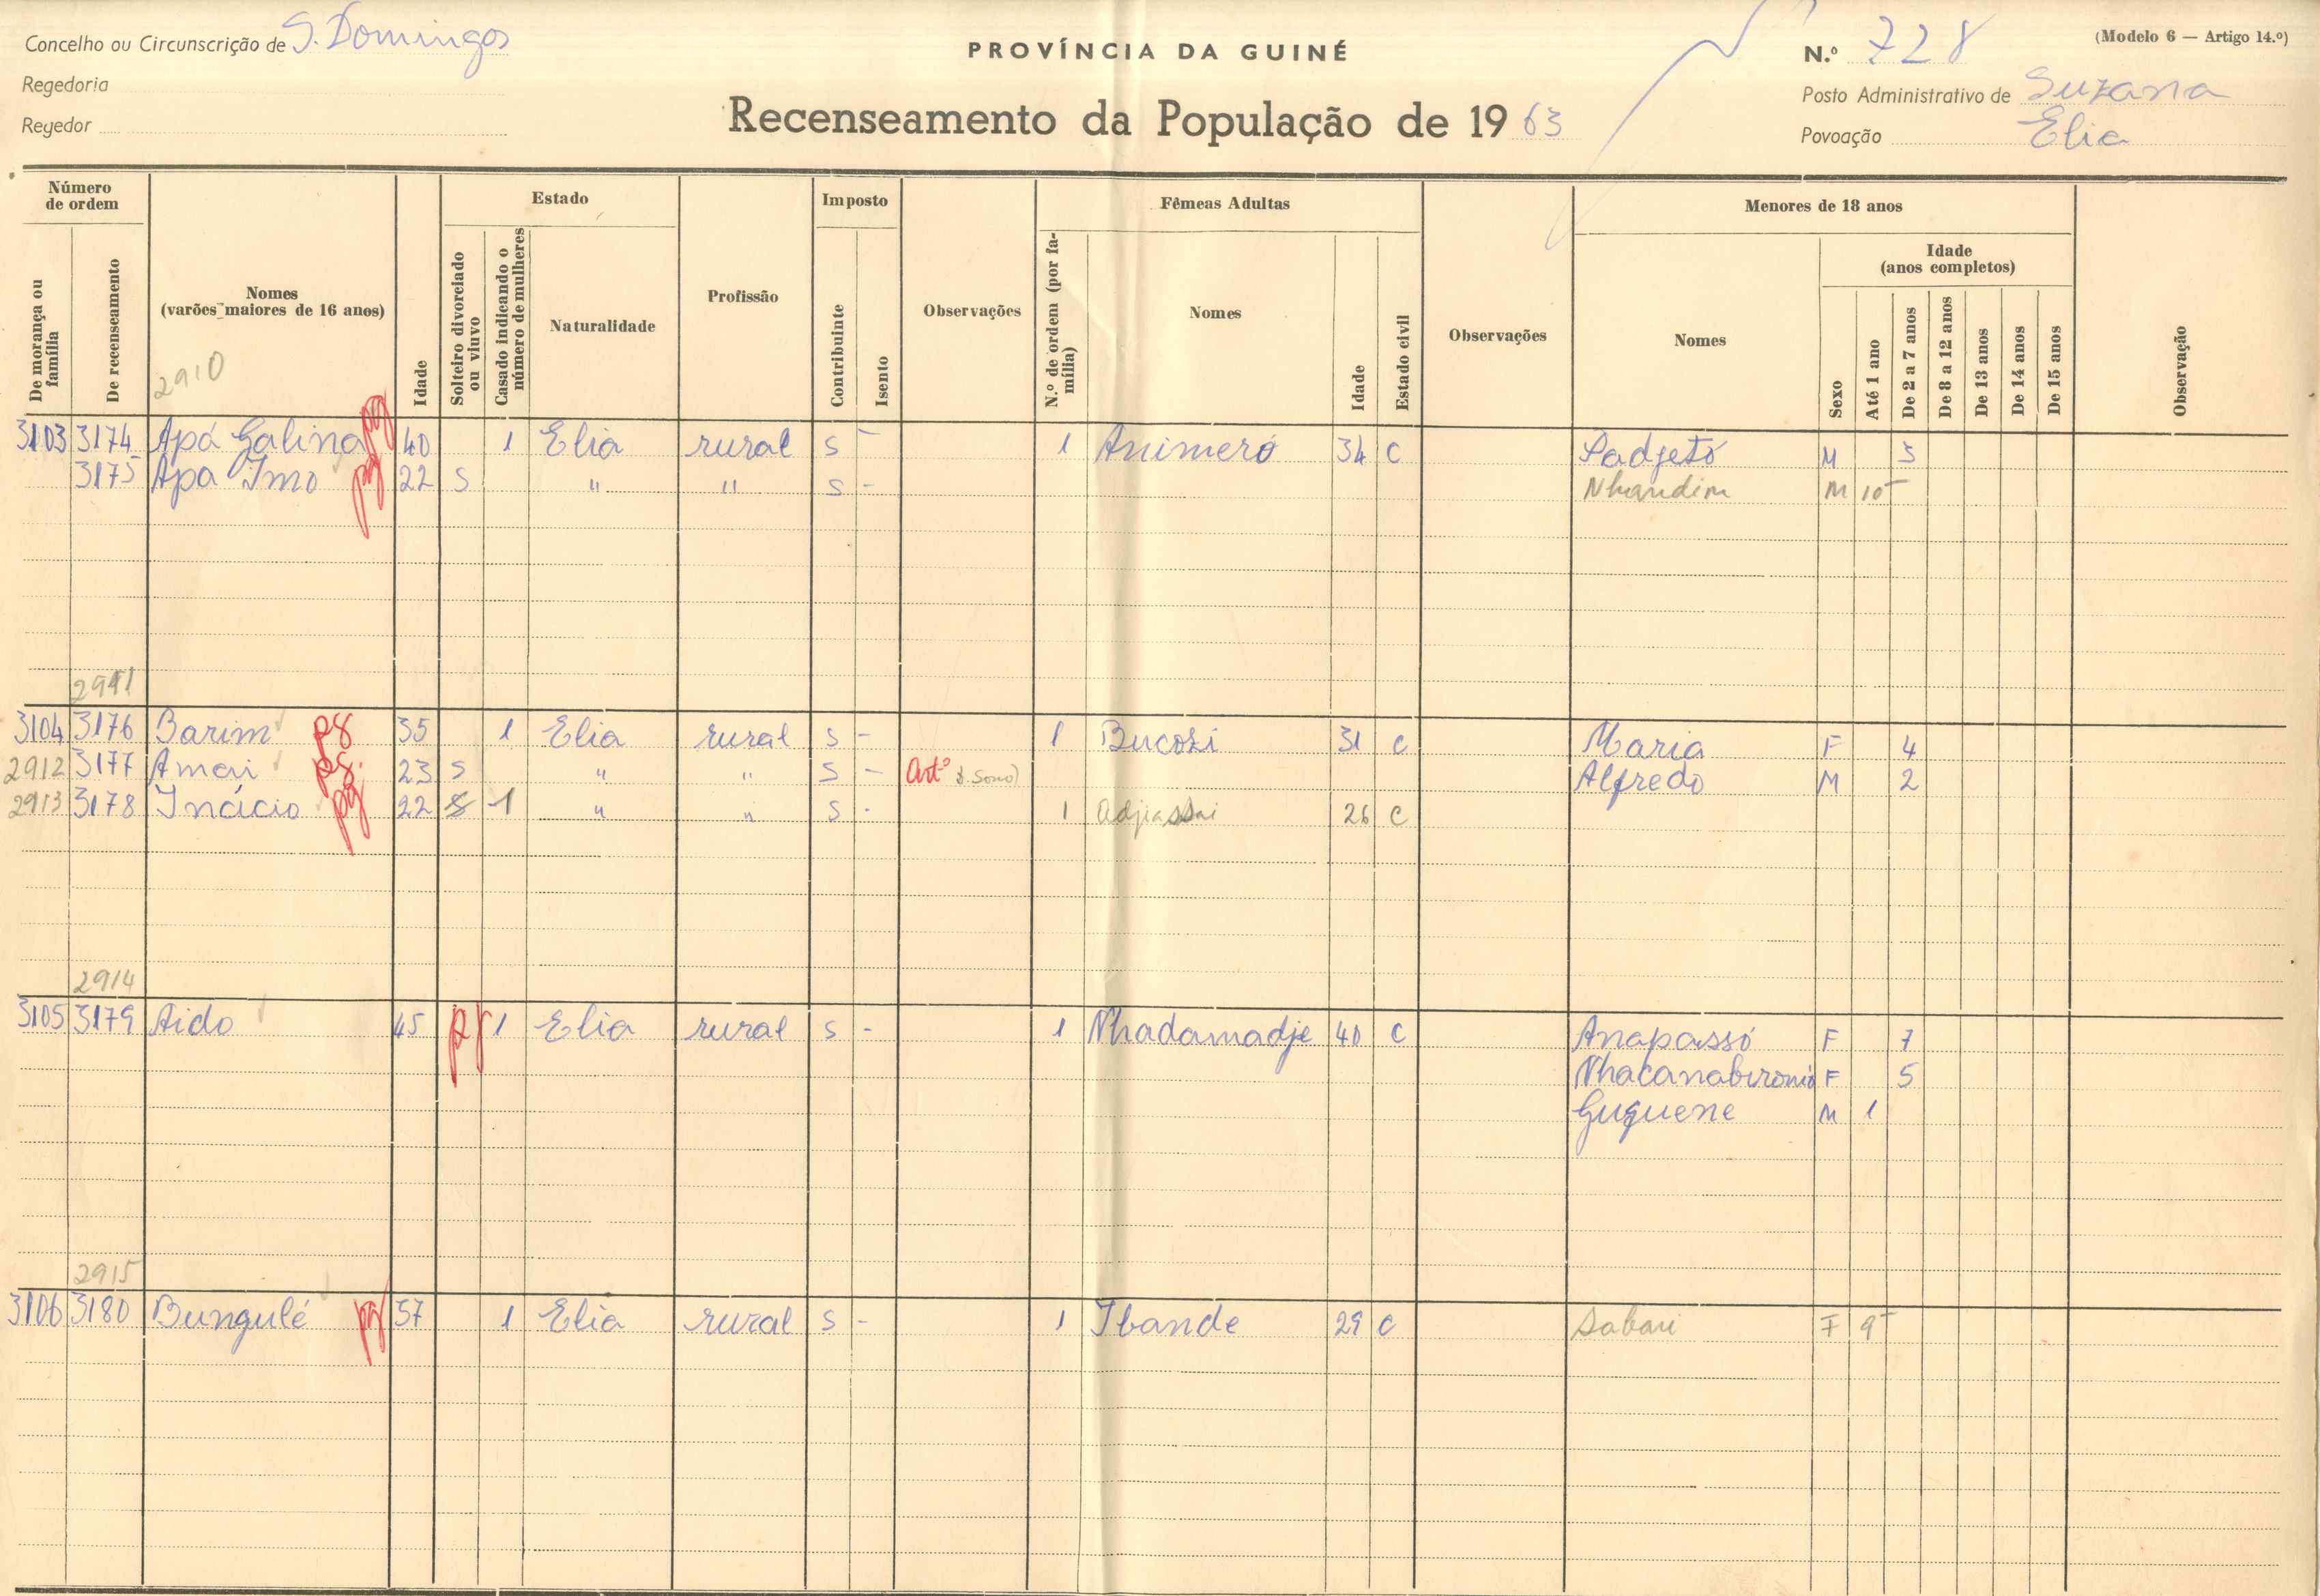 Concelho ou Circunscrição de S. Domingos
Regedoria
Regedor
PROVÍNCIA DA GUINÉ
Recenseamento da População de 1963
N.º 728
(Modelo 6 — Artigo 14.º)
Posto Administrativo de Suzana
Povoação Elia
Número de ordem
De morança ou família
De recenseamento
Nomes
(varões maiores de 16 anos)
2910
Idade
Estado
Solteiro divorciado ou viuvo
Casado indicando o número de mulheres
Naturalidade
Profissão
Imposto
Contribuinte
Isento
Observações
Fêmeas Adultas
N.º de ordem (por família)
Nomes
Idade
Estado civil
Observações
Menores de 18 anos
Nomes
Sexo
Idade
(anos completos)
Até 1 ano
De 2 a 7 anos
De 8 a 12 anos
De 13 anos
De 14 anos
De 15 anos
Observação
3103 3174 Apá Galina pg 40 1 Elia rural s - 1 Animeró 34 C Sadjetó M 5
3175 Apa Imo pg 22 S " " s - Nhandim M 10
2911
3104 3176 Barim pg 35 1 Elia rural s - 1 Bucosi 31 C Maria F 4
2912 3177 Amai pg. 23 S " " s - Artº Alfredo M 2
2913 3178 Inácio pg 22 S 1 " " s - 1 Adjiassai 26 C
2914
3105 3179 Aido 45 pg 1 Elia rural s - 1 Nhadamadje 40 C Anapassó F 7
Nhacanabironió F 5
Guguene M 1
2915
3106 3180 Bungulé pg 57 1 Elia rural s - 1 Ibande 29 C Sabari F 9